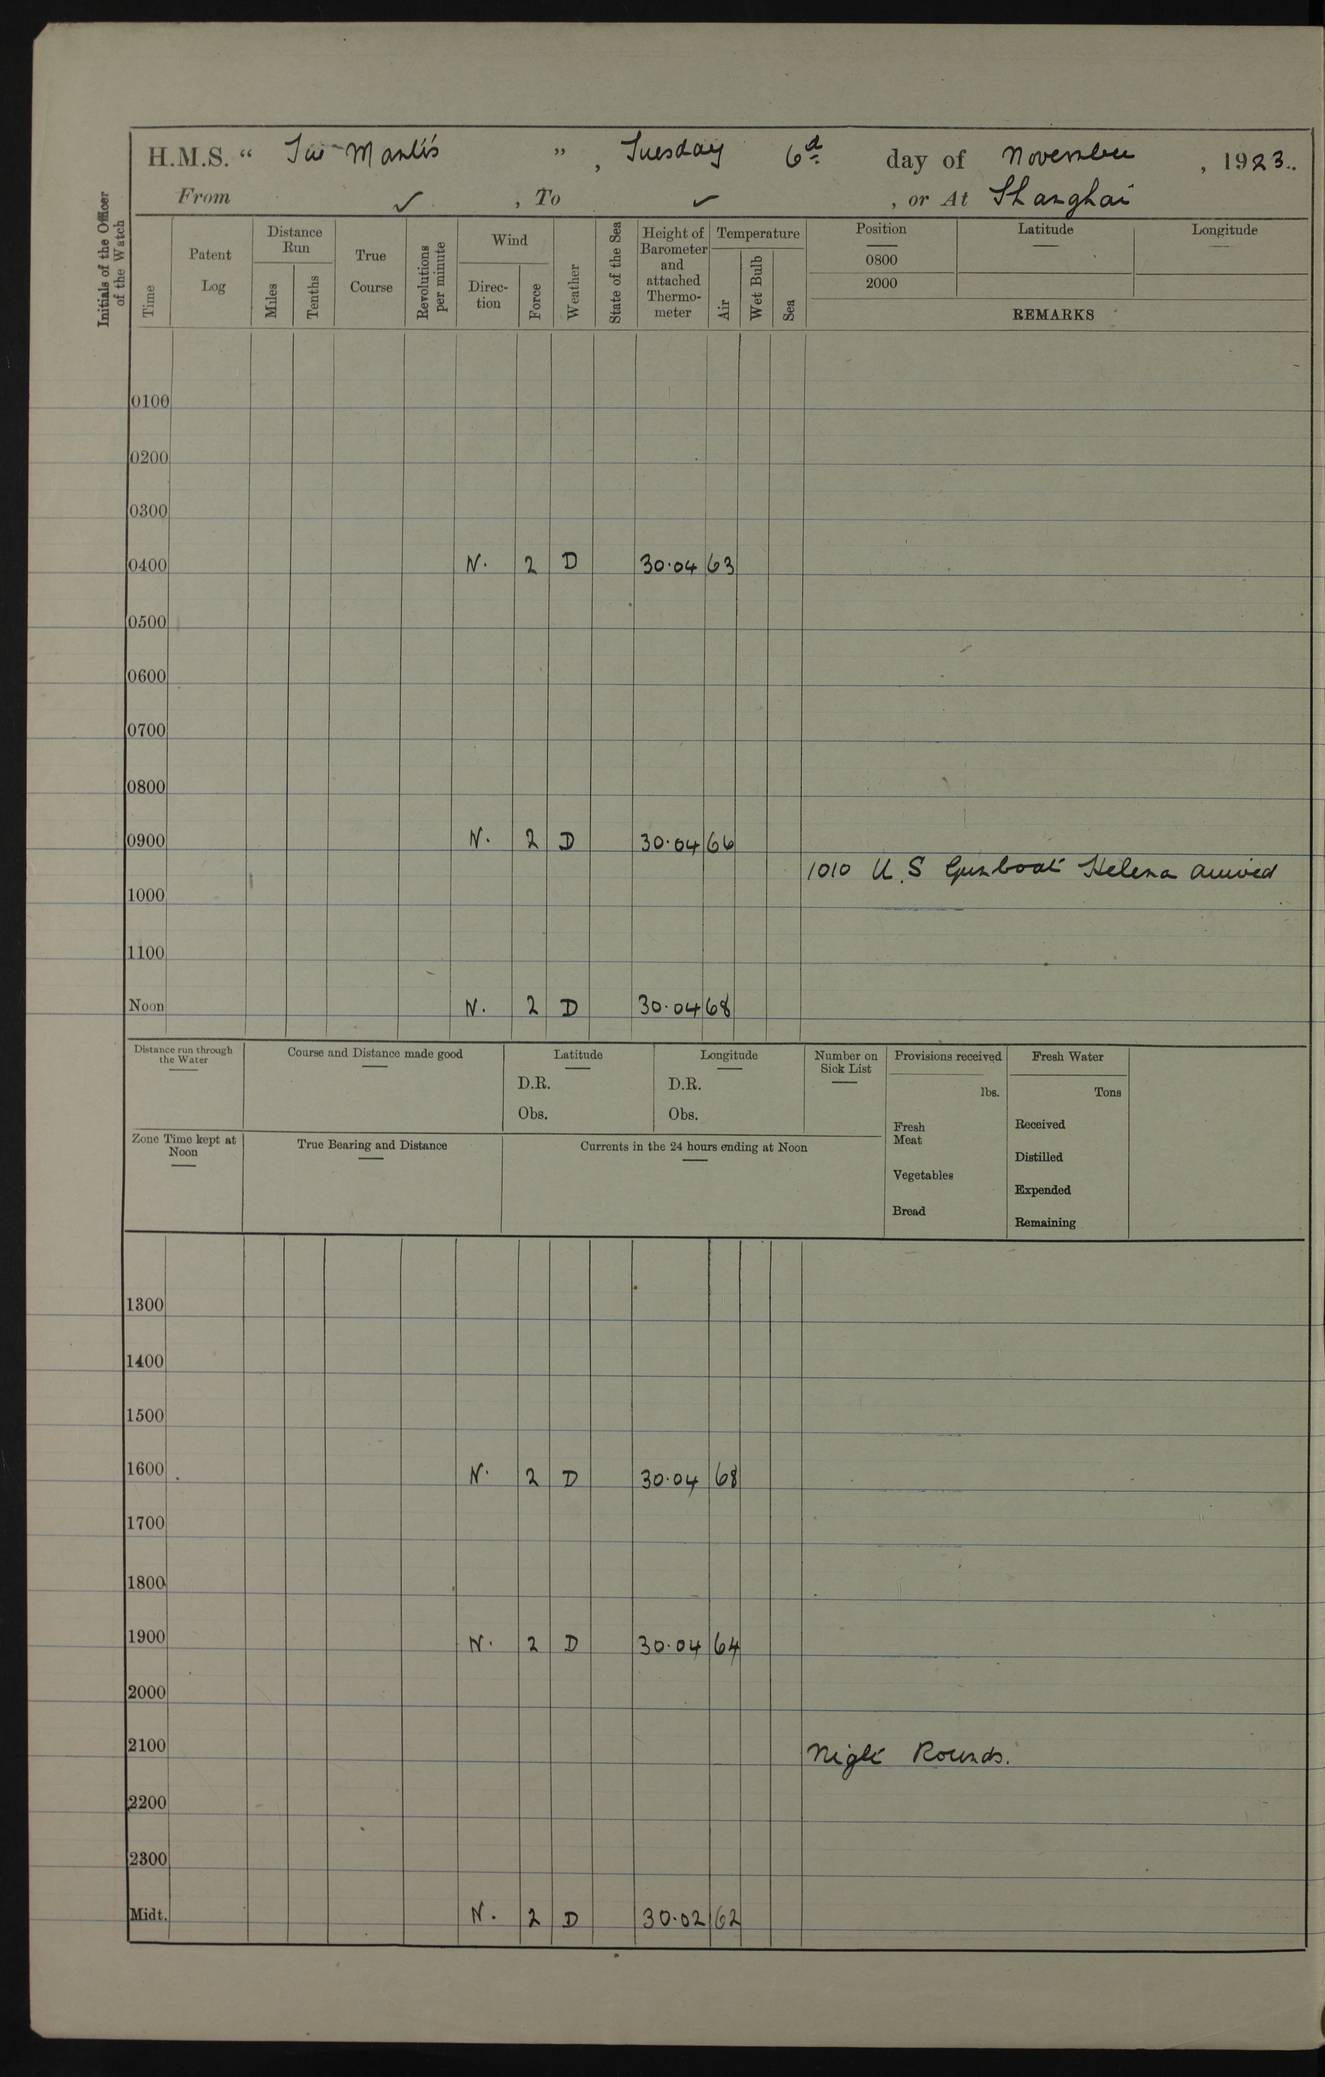 H.M.S. “ Tui Manlis ”, Tuesday 6d day of November, 1923..
From ✓, To ✓, or At Shanghai
Initials of the Officer of the Watch
Time
Patent Log
Distance Run
Miles
Tenths
True Course
Revolutions per minute
Wind
Direc-tion
Force
Weather
State of the Sea
Height of Barometer and attached Thermo-meter
Temperature
Air
Wet Bulb
Sea
Position
Latitude
Longitude
0800
2000
REMARKS
0100
0200
0300
0400 N. 2 D 30.04 63
0500
0600
0700
0800
0900 N. 2 D 30.04 66
1010 U.S Gunboat Helena arrived
1000
1100
Noon N. 2 D 30.04 68
Distance run through the Water
Course and Distance made good
Latitude
D.R.
Obs.
Longitude
D.R.
Obs.
Number on Sick List
Provisions received
lbs.
Fresh Meat
Vegetables
Bread
Fresh Water
Tons
Received
Distilled
Expended
Remaining
Zone Time kept at Noon
True Bearing and Distance
Currents in the 24 hours ending at Noon
1300
1400
1500
1600 N. 2 D 30.04 68
1700
1800
1900 N. 2 D 30.04 64
2000
2100 Night Rounds.
2200
2300
Midt. N. 2 D 30.02 62